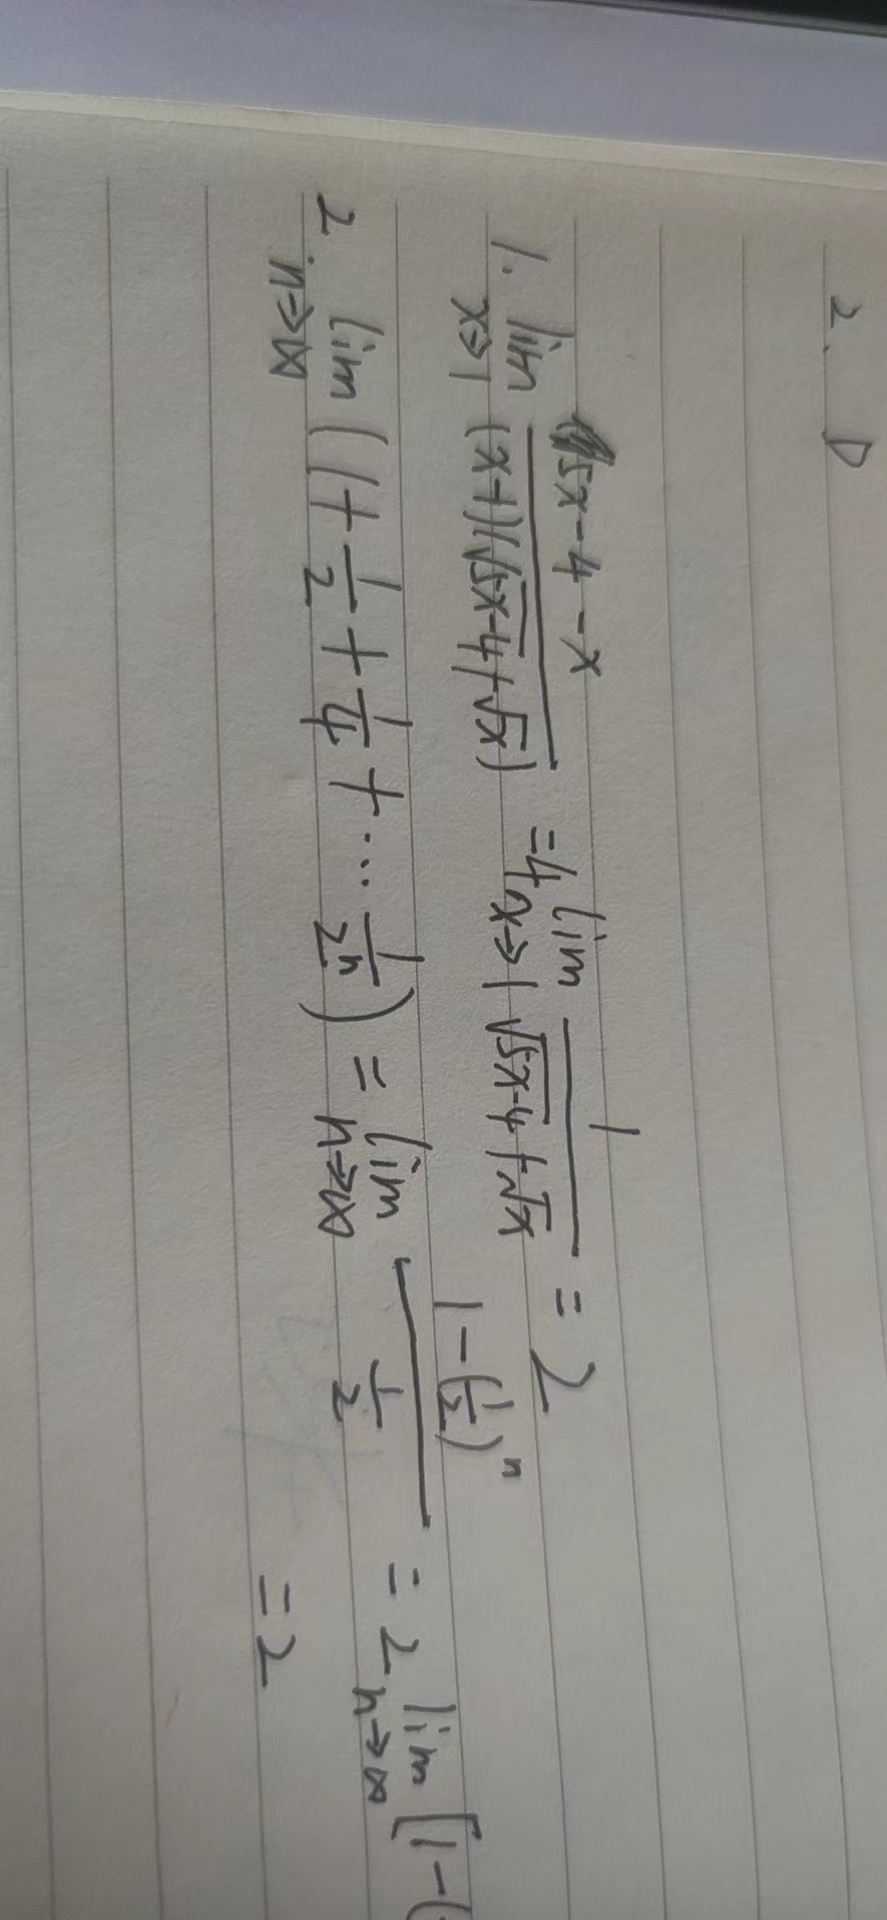 2. D
1. lim x→1 (5x-4-x)/((x-1)(√(5x-4)+√x)) = 4 lim x→1 1/(√(5x-4)+√x) = 2
2. lim n→∞ (1+1/2+1/4+...1/2ⁿ) = lim n→∞ (1-(1/2)ⁿ)/(1/2) = 2 lim n→∞ [1-(
=2